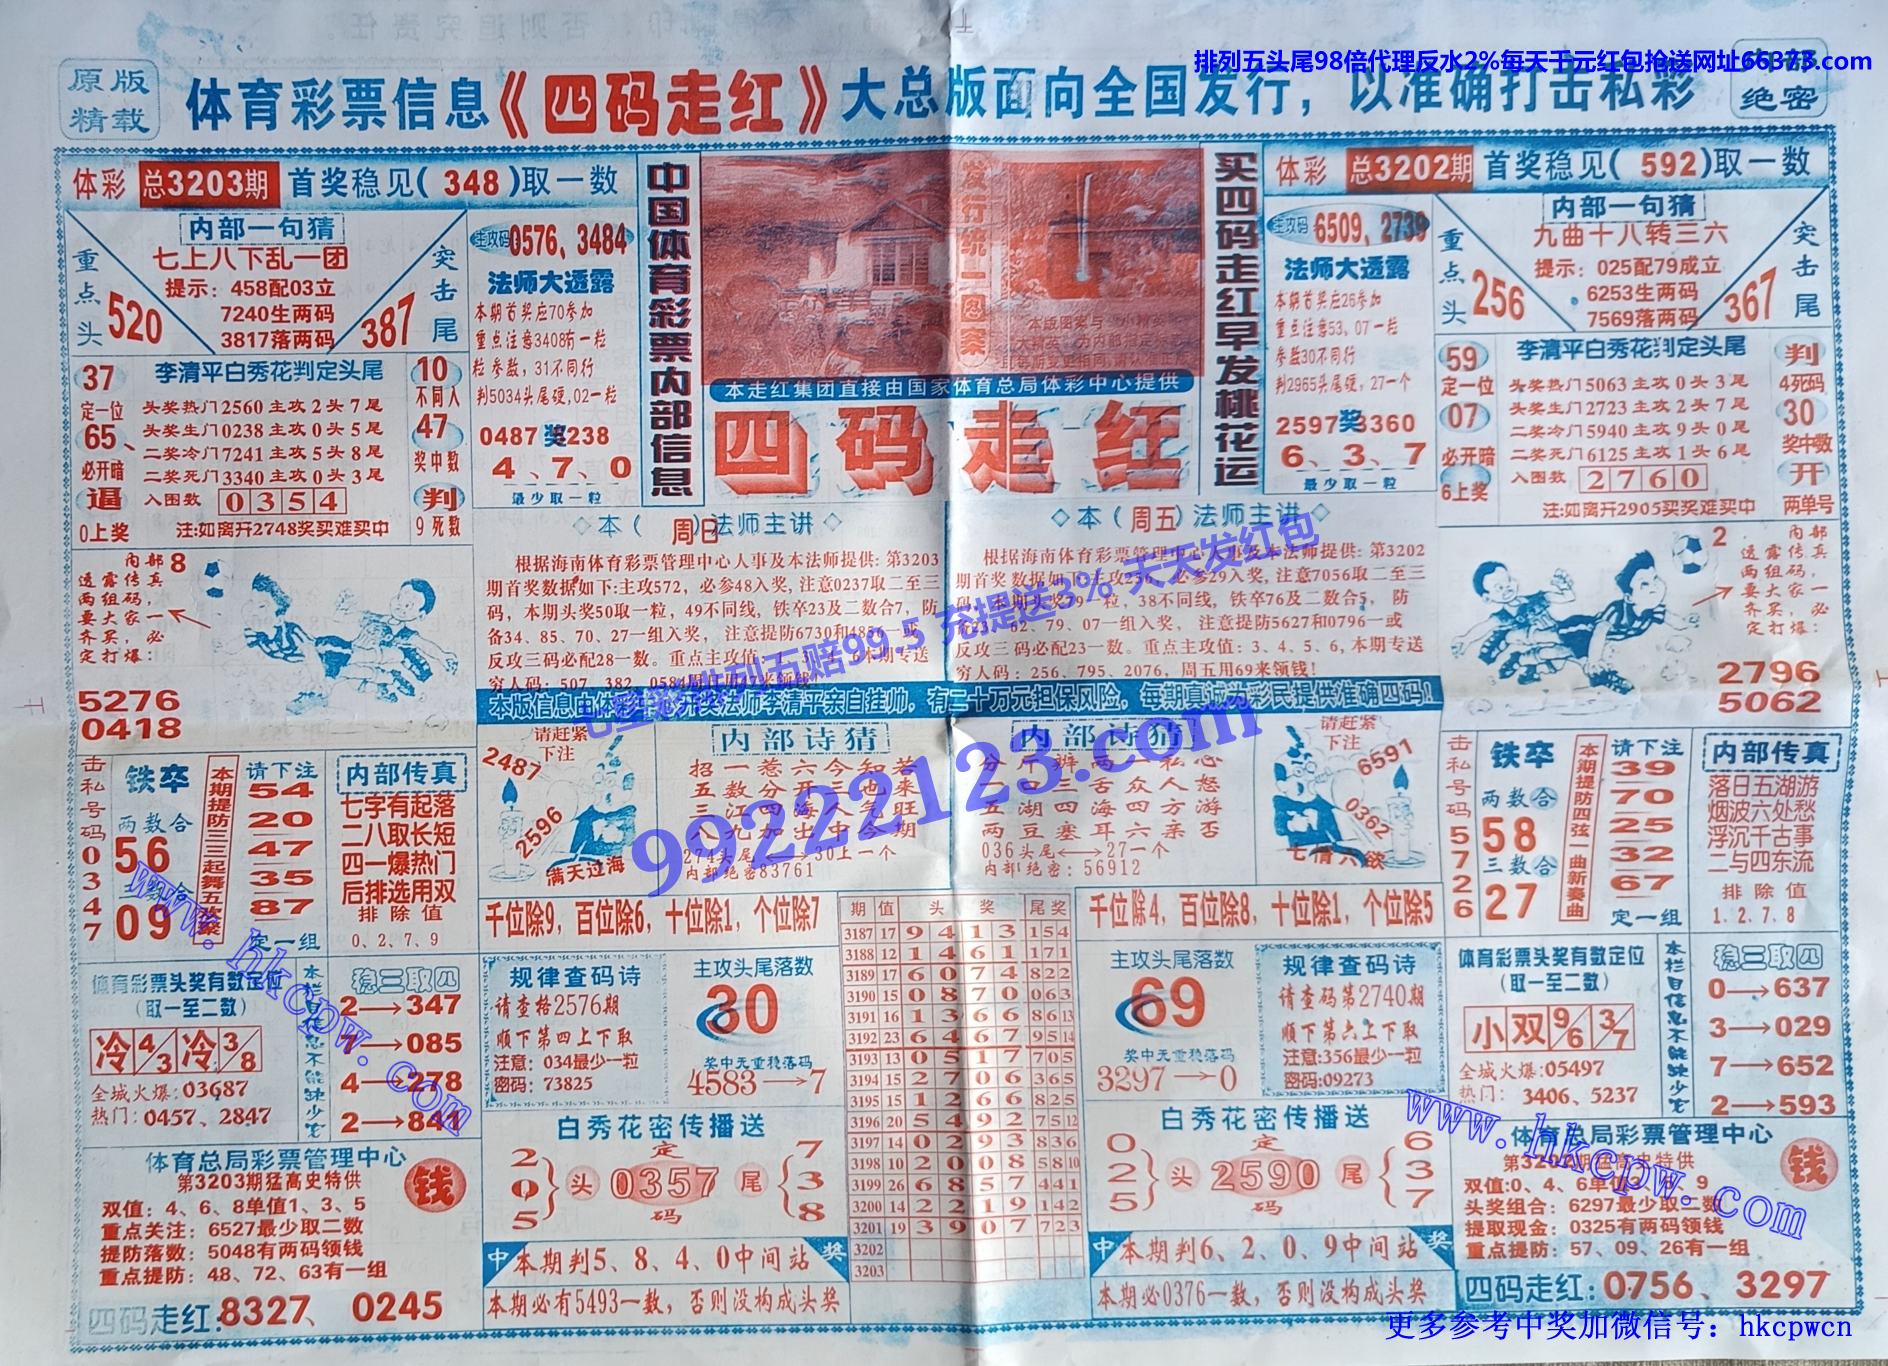 排列五头尾98倍代理反水2%每天千元红包抢送网址66373.com
原版
精载
体育彩票信息《四码走红》大总版面向全国发行，以准确打击私彩
绝密
体彩 总3203期 首奖稳见(348)取一数
内部一句猜
七上八下乱一团
提示：458配03立
7240生两码
3817落两码
重点头
520
突击尾
387
主攻码 0576、3484
法师大透露
本期首奖应70参加
重点注意3408有一粒
粒参数，31不同行
判5034头尾硬,02一粒
0487奖238
4、7、0
最少取一粒
37
定一位
65、
必开暗
逼
0上奖
李清平白秀花判定头尾
头奖热门2560主攻2头7尾
头奖生门0238主攻0头5尾
二奖冷门7241主攻5头8尾
二奖死门3340主攻0头3尾
入图数 0354
注:如离开2748奖买难买中
10
不同人
47
奖中数
判
9死数
中国体育彩票内部信息
发行统一图案
本走红集团直接由国家体育总局体彩中心提供
四码走红
买四码走红早发桃花运
体彩 总3202期 首奖稳见(592)取一数
内部一句猜
九曲十八转三六
提示：025配79成立
6253生两码
7569落两码
重点头
256
突击尾
367
主攻码 6509、2739
法师大透露
本期首奖应26参加
重点注意53、07一粒
参数30不同行
判2965头尾硬，27一个
2597奖3360
6、3、7
最少取一粒
59
定一位
07
必开暗
6上奖
李清平白秀花判定头尾
头奖热门5063主攻0头3尾
头奖生门2723主攻2头7尾
二奖冷门5940主攻9头0尾
二奖死门6125主攻1头6尾
入图数 2760
注:如离开2905买奖难买中
判
4死码
30
奖中数
开
两单号
内部
透露传真
两组码，
要大家一
齐买，必
定打爆：
8
5276
0418
◇本(周日)法师主讲◇
根据海南体育彩票管理中心人事及本法师提供：第3203
期首奖数据如下:主攻572，必参48入奖，注意0237取二至三
码，本期头奖50取一粒，49不同线，铁卒23及二数合7，防
备34、85、70、27一组入奖，注意提防6730和4856一或
反攻三码必配28一数。重点主攻值：
◇本(周五)法师主讲◇
根据海南体育彩票管理中心人事及本法师提供：第3202
反攻三码必配23一数。重点主攻值：3、4、5、6,本期专送
穷人码：256、795、2076，周五用69来领钱!
七星彩排列五赔99.5 充提送3% 天天发红包
内部
透露传真
两组码，
要大家一
齐买，必
定打爆：
2
2796
5062
击私号码0347
铁卒
两数合
56
09
本期提防三三起舞五欢聚
请下注
54
20
47
35
87
定一组
内部传真
七字有起落
二八取长短
四一爆热门
后排选用双
排除值
0、2、7、9
请赶紧
下注
2487
2596
满天过海
内部诗猜
招一惹六今知若
五数分开三也来
三江四海人气旺
八九加出中今期
274头尾←→30上一个
内部绝密83761
99222123.com
内部诗猜
五湖四海四方游
两豆塞耳六亲否
036头尾←→27一个
内部绝密：56912
请赶紧
下注
6591
0362
七情六欲
击私号码5726
铁卒
两数合
58
三数合
27
本期提防四弦一曲新奏曲
请下注
39
70
25
32
67
定一组
内部传真
落日五湖游
烟波六处愁
浮沉千古事
二与四东流
排除值
1、2、7、8
千位除9，百位除6，十位除1，个位除7
千位除4，百位除8，十位除1，个位除5
体育彩票头奖有数定位
(取一至二数)
冷 4/3 冷 3/8
全城火爆：03687
热门：0457、2847
本栏目信息不能缺少它
稳三取四
2→347
7→085
4→278
2→841
规律查码诗
请查格2576期
顺下第四上下取
注意：034最少一粒
密码：73825
主攻头尾落数
30
奖中无重稳落码
4583→7
期 值 头奖 尾奖
3187 17 9413 154
3188 12 1461 171
3189 17 6074 822
3190 15 0870 063
3191 16 1366 8613
3192 23 6467 9514
3193 13 0517 705
3194 15 2706 365
3195 15 1266 825
3196 20 5492 7512
3197 14 0293 836
3198 10 2008 5810
3199 26 6857 441
3200 14 2219 142
3201 19 3907 723
3202
3203
主攻头尾落数
69
奖中无重稳落码
3297→0
规律查码诗
请查码第2740期
顺下第六上下取
注意:356最少一粒
密码:09273
体育彩票头奖有数定位
(取一至二数)
小双 9/6 3/7
全城火爆：05497
热门：3406、5237
本栏目信息不能缺少它
稳三取四
0→637
3→029
7→652
2→593
体育总局彩票管理中心
第3203期猛高史特供
钱
双值：4、6、8单值1、3、5
重点关注：6527最少取二数
提防落数：5048有两码领钱
重点提防：48、72、63有一组
四码走红:8327、0245
白秀花密传播送
205 头 定 0357 码 尾 738
中 本期判5、8、4、0中间站 奖
本期必有5493一数，否则没构成头奖
白秀花密传播送
025 头 定 2590 码 尾 637
中 本期判6、2、0、9中间站 奖
本期必0376一数，否则没构成头奖
体育总局彩票管理中心
钱
头奖组合：6297最少取二数
提取现金：0325有两码领钱
重点提防：57、09、26有一组
四码走红:0756、3297
www.hkcpw.com
www.hkcpw.com
更多参考中奖加微信号：hkcpwcn